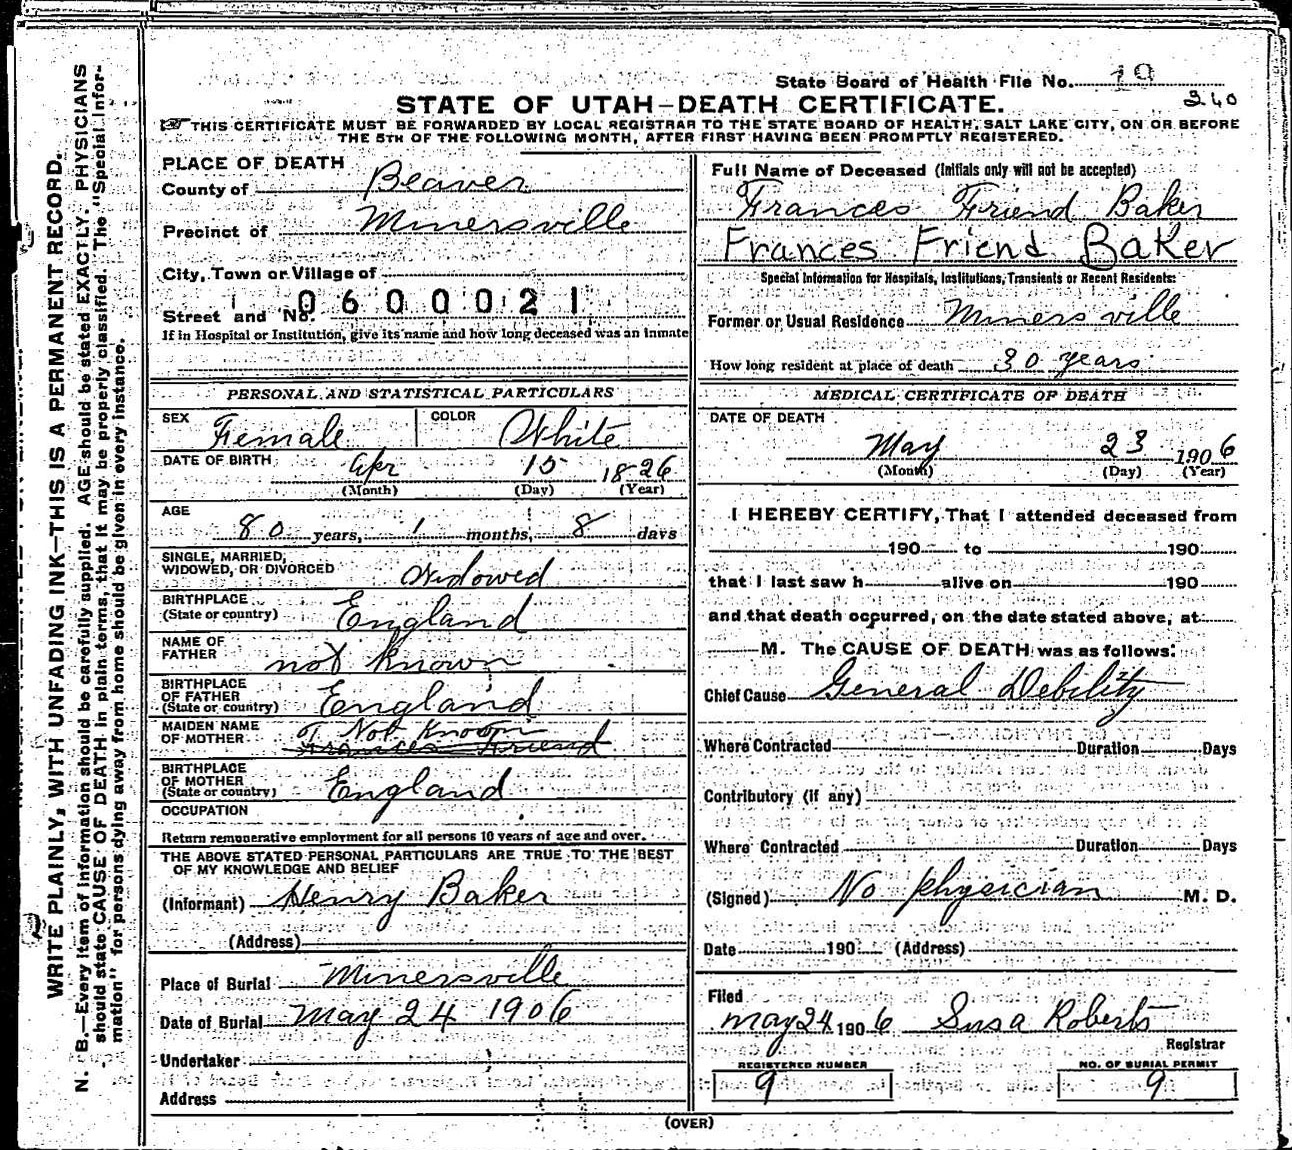 State Board of Health File No. 19
240
STATE OF UTAH—DEATH CERTIFICATE.
THIS CERTIFICATE MUST BE FORWARDED BY LOCAL REGISTRAR TO THE STATE BOARD OF HEALTH, SALT LAKE CITY, ON OR BEFORE
THE 5TH OF THE FOLLOWING MONTH, AFTER FIRST HAVING BEEN PROMPTLY REGISTERED.
WRITE PLAINLY, WITH UNFADING INK—THIS IS A PERMANENT RECORD.
N. B.—Every item of information should be carefully supplied. AGE should be stated EXACTLY. PHYSICIANS
should state CAUSE OF DEATH in plain terms, that it may be properly classified. The "Special Infor-
mation" for persons dying away from home should be given in every instance.
PLACE OF DEATH
County of Beaver
Precinct of Minersville
City, Town or Village of
0600021
Street and No.
If in Hospital or Institution, give its name and how long deceased was an inmate
PERSONAL AND STATISTICAL PARTICULARS
SEX Female COLOR White
DATE OF BIRTH Apr 15 1826
(Month) (Day) (Year)
AGE
80 years, 1 months, 8 days
SINGLE, MARRIED,
WIDOWED, OR DIVORCED Widowed
BIRTHPLACE
(State or country) England
NAME OF
FATHER not known
BIRTHPLACE
OF FATHER
(State or country) England
MAIDEN NAME
OF MOTHER Not Known
Frances Friend
BIRTHPLACE
OF MOTHER
(State or country) England
OCCUPATION
Return remunerative employment for all persons 10 years of age and over.
THE ABOVE STATED PERSONAL PARTICULARS ARE TRUE TO THE BEST
OF MY KNOWLEDGE AND BELIEF
(Informant) Henry Baker
(Address)
Place of Burial Minersville
Date of Burial May 24 1906
Undertaker
Address
Full Name of Deceased (Initials only will not be accepted)
Frances Friend Baker
Frances Friend Baker
Special Information for Hospitals, Institutions, Transients or Recent Residents:
Former or Usual Residence Minersville
How long resident at place of death 30 years
MEDICAL CERTIFICATE OF DEATH
DATE OF DEATH
May 23 1906
(Month) (Day) (Year)
I HEREBY CERTIFY, That I attended deceased from
190 to 190
that I last saw h alive on 190
and that death occurred, on the date stated above, at
M. The CAUSE OF DEATH was as follows:
Chief Cause General Debility
Where Contracted Duration Days
Contributory (if any)
Where Contracted Duration Days
(Signed) No physician M. D.
Date 190 (Address)
Filed
May 24 1906 Susa Roberts
Registrar
REGISTERED NUMBER NO. OF BURIAL PERMIT
9 9
(OVER)